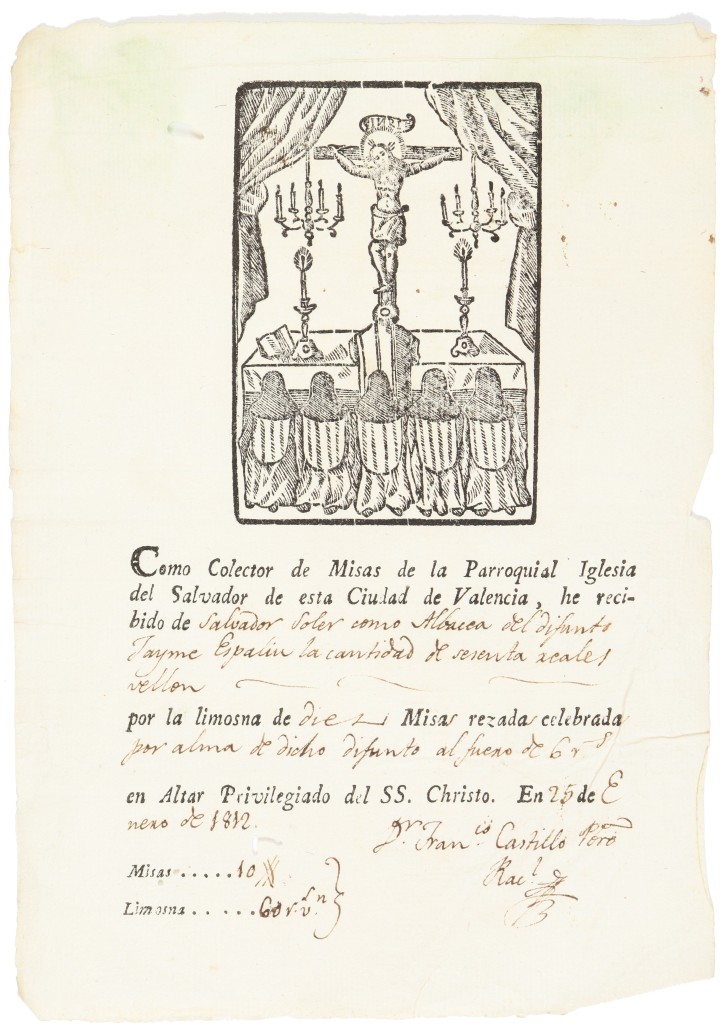 Como Colector de Misas de la Parroquial Iglesia
del Salvador de esta Ciudad de Valencia, he reci-
bido de Salvador Soler como Albacea del difunto
Jayme Espaliu la cantidad de sesenta reales
vellon
por la limosna de diez Misas rezadas celebrada
por alma de dicho difunto al fuero de 6 r.s
en Altar Privilegiado del SS. Christo. En 25 de E
nero de 1812.
Dr. Fran.co Castillo
Misas . . . . . 10
Limosna . . . . . 60 r.s v.n